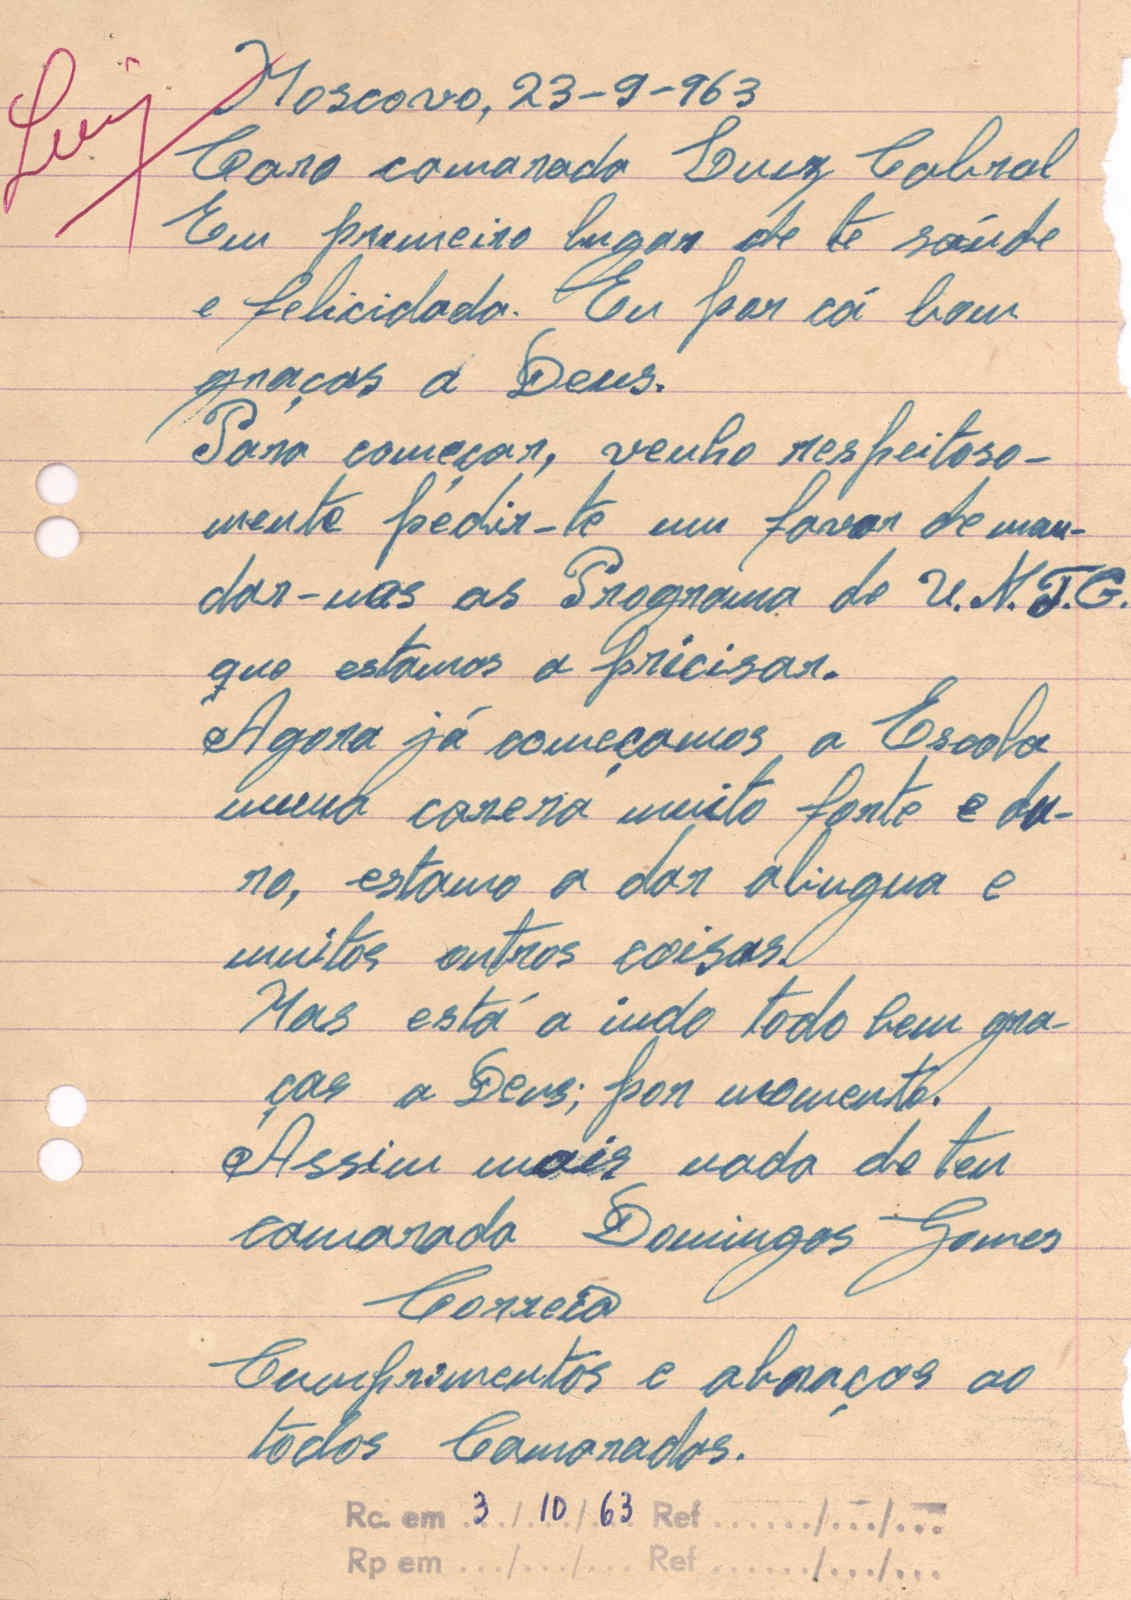 Luiz
Moscovo, 23-9-963
Caro camarada Luiz Cabral
Em primeiro lugar de te saúde
e felicidada. Eu por cá bom
graças a Deus.
Para começar, venho respeitoso-
mente pédir-te um favor de man-
dar-nos as Programa de U.N.T.G.
que estamos a pricisar.
Agora já começamos a Escola
numa carera muito forte e du-
ro, estamo a dar alingua e
muitos outros coisas.
Mas está a indo todo bem gra-
ças a Deus; por momento.
Assim mais nada do teu
camarada Domingos Gomes
Correia
Cumprimentos e abraços ao
todos Camaradas.
Rc. em 3/10/63 Ref ....../.../...
Rp em .../.../... Ref ....../.../...